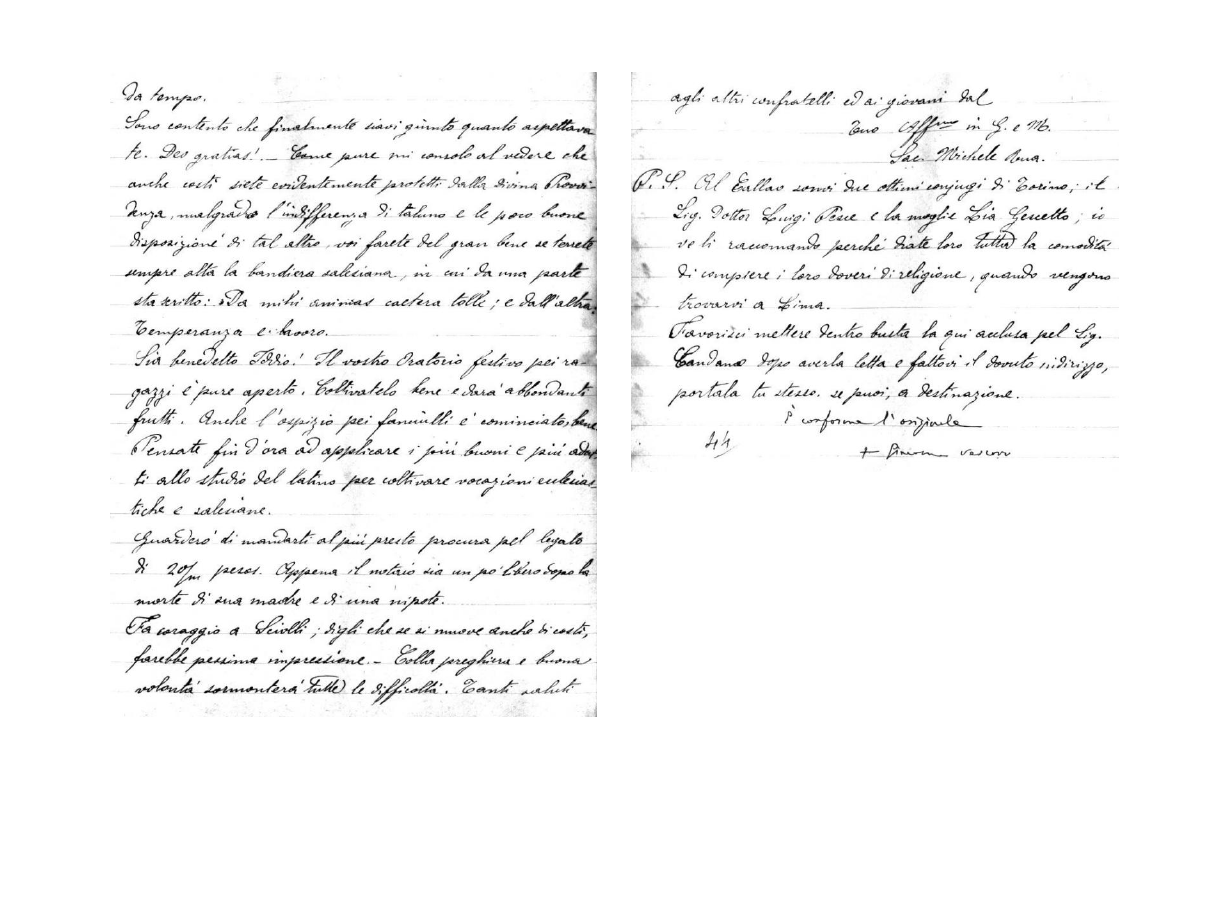 da tempo.
Sono contento che finalmente siavi giunto quanto aspettava
te. Deo gratias! _ Come pure mi consolo al vedere che
anche costì siete evidentemente protetti dalla divina Provvi-
denza, malgrado l'indifferenza di taluno e le poco buone
disposizioni di tal altro, voi farete del gran bene se terrete
sempre alta la bandiera salesiana, in cui da una parte
sta scritto: Da mihi animas caetera tolle; e dall'altra:
Temperanza e lavoro.
Sia benedetto Iddio! Il vostro Oratorio festivo pei ra-
gazzi è pure aperto. Coltivatelo bene e darà abbondanti
frutti. Anche l'ospizio pei fanciulli è cominciato, bene
Pensate fin d'ora ad applicare i più buoni e più adat-
ti allo studio del latino per coltivare vocazioni ecclesias
tiche e salesiane.
Guarderò di mandarti al più presto procura pel legato
di 20/m pesos. Appena il notaio sia un po' libero dopo la
morte di sua madre e di una nipote.
Fa coraggio a Sciolli; digli che se si muove anche di costì,
farebbe pessima impressione. – Colla preghiera e buona
volontà sormonterà tutte le difficoltà. Tanti saluti
agli altri confratelli ed ai giovani dal
Tuo Aff.mo in G. e M.
Sac. Michele Rua.
P. S. Al Callao sonvi due ottimi conjugi di Torino; il
Sig. Dottor Luigi Pesce e la moglie Lia; io
ve li raccomando perché diate loro tutta la comodità
di compiere i loro doveri di religione, quando vengono
trovarvi a Lima.
Favorisci mettere dentro busta la qui acclusa pel Sig.
Candamo dopo averla letta e fattovi il dovuto indirizzo,
portala tu stesso, se puoi, a destinazione.
È conforme l'originale
44
+ vescovo